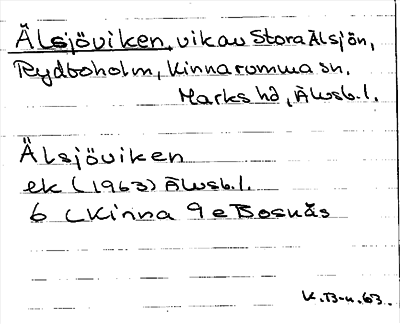 Älsjöviken, vik av Stora Älsjön,
Rydboholm, Kinnarumma sn.
Marks hd, Älvsb. l.
Älsjöviken
ek (1963) Älvsb. l.
6 C Kinna 9 e Bosnäs
K.B-n. 63.